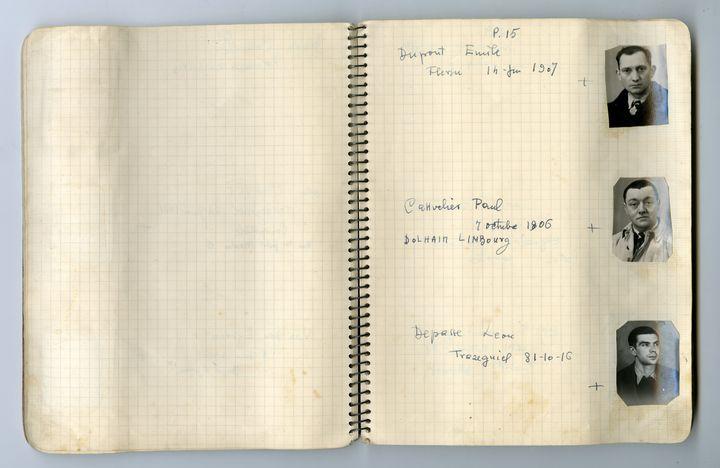 P.15
Dupont Emile
14 Jun 1907
Cauvelier Paul
7 octobre 1906
DOLHAIN LIMBOURG
Depasse Leon
Trazegnies 31-10-16